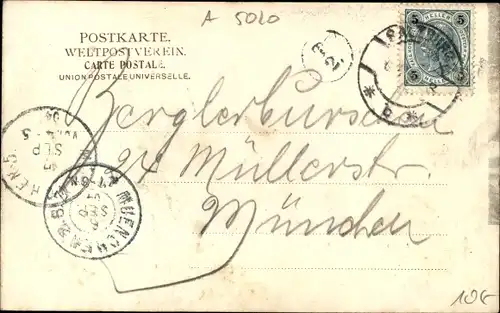 A 5020
POSTKARTE.
WELTPOSTVEREIN.
CARTE POSTALE.
UNION POSTALE UNIVERSELLE.
5 HELLER 5
5 5
SALZBURG
Berglerburschen
24 Müllerstr.
München
SEP
MUENCHEN 2. B.
SEP
10G